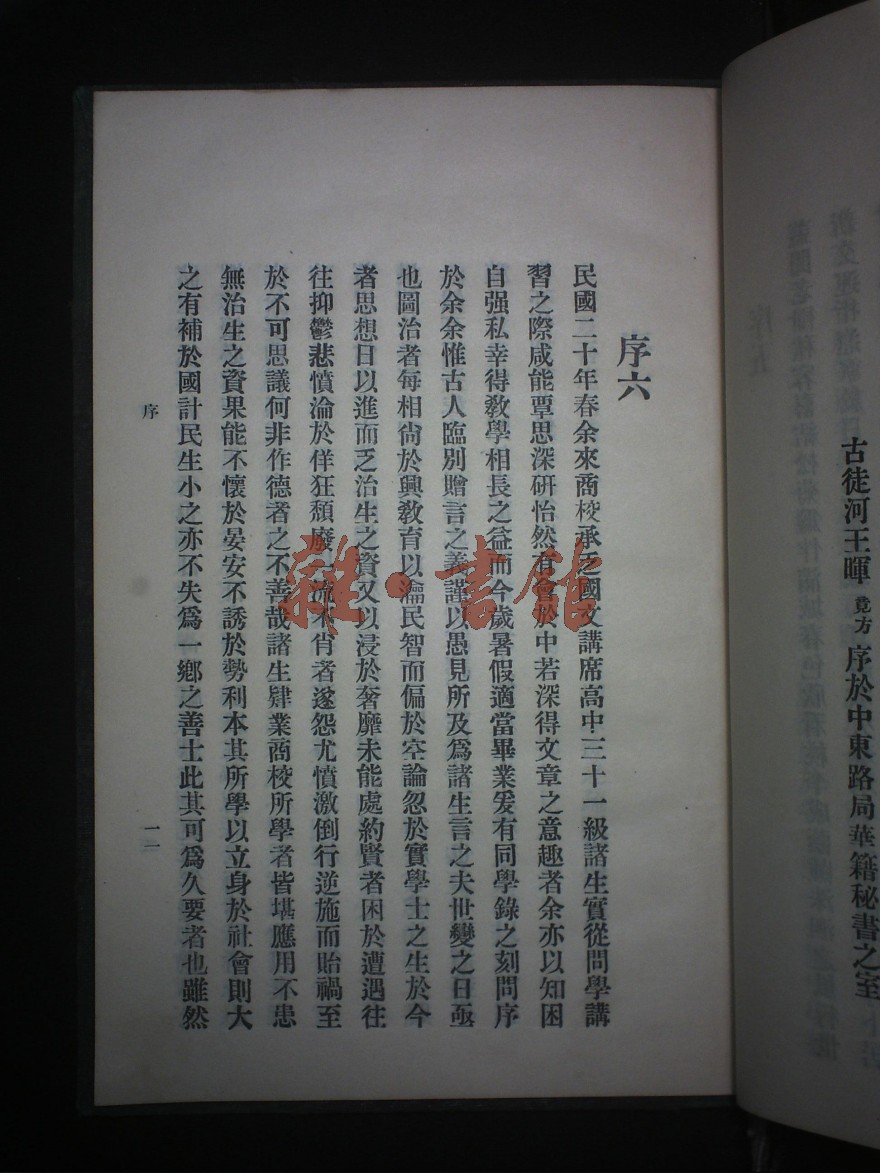 古徒河王暉竟方序於中東路局華籍秘書之室
序六
民國二十年春余來商校承乏國文講席高中三十一級諸生實從問學講
習之際咸能覃思深研怡然有會於中若深得文章之意趣者余亦以知困
自强私幸得敎學相長之益而今歲暑假適當畢業爰有同學錄之刻問序
於余余惟古人臨別贈言之義謹以愚見所及爲諸生言之夫世變之日亟
也圖治者每相尙於興敎育以瀹民智而偏於空論忽於實學士之生於今
者思想日以進而乏治生之資又以浸於奢靡未能處約賢者困於遭遇往
往抑鬱悲憤淪於佯狂頹廢一流不肖者遂怨尤憤激倒行逆施而貽禍至
於不可思議何非作德者之不善哉諸生肄業商校所學者皆堪應用不患
無治生之資果能不懷於晏安不誘於勢利本其所學以立身於社會則大
之有補於國計民生小之亦不失爲一鄉之善士此其可爲久要者也雖然
序
一一
雜·書館